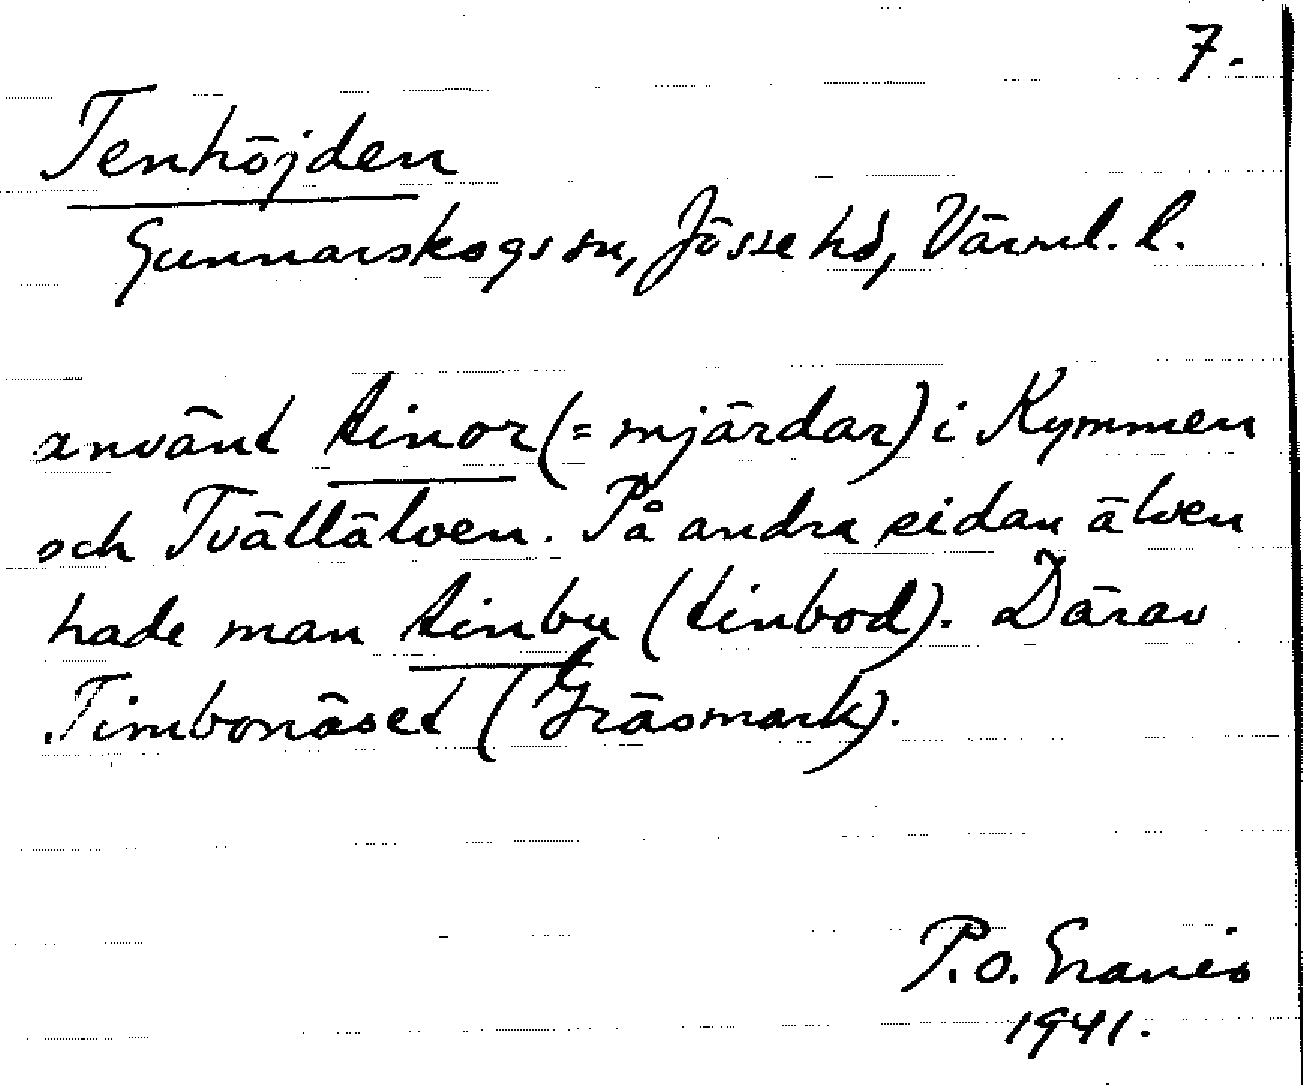 7.
Tenhöjden
Gunnarskogs sn, Jösse hd, Värml. l.
använt tinor (= mjärdar) i Kymmen
och Tvällälven. På andra sidan älven
hade man tinbu (tinbod). Därav
Timbonäset (Gräsmark).
P.O. Granér
1941.